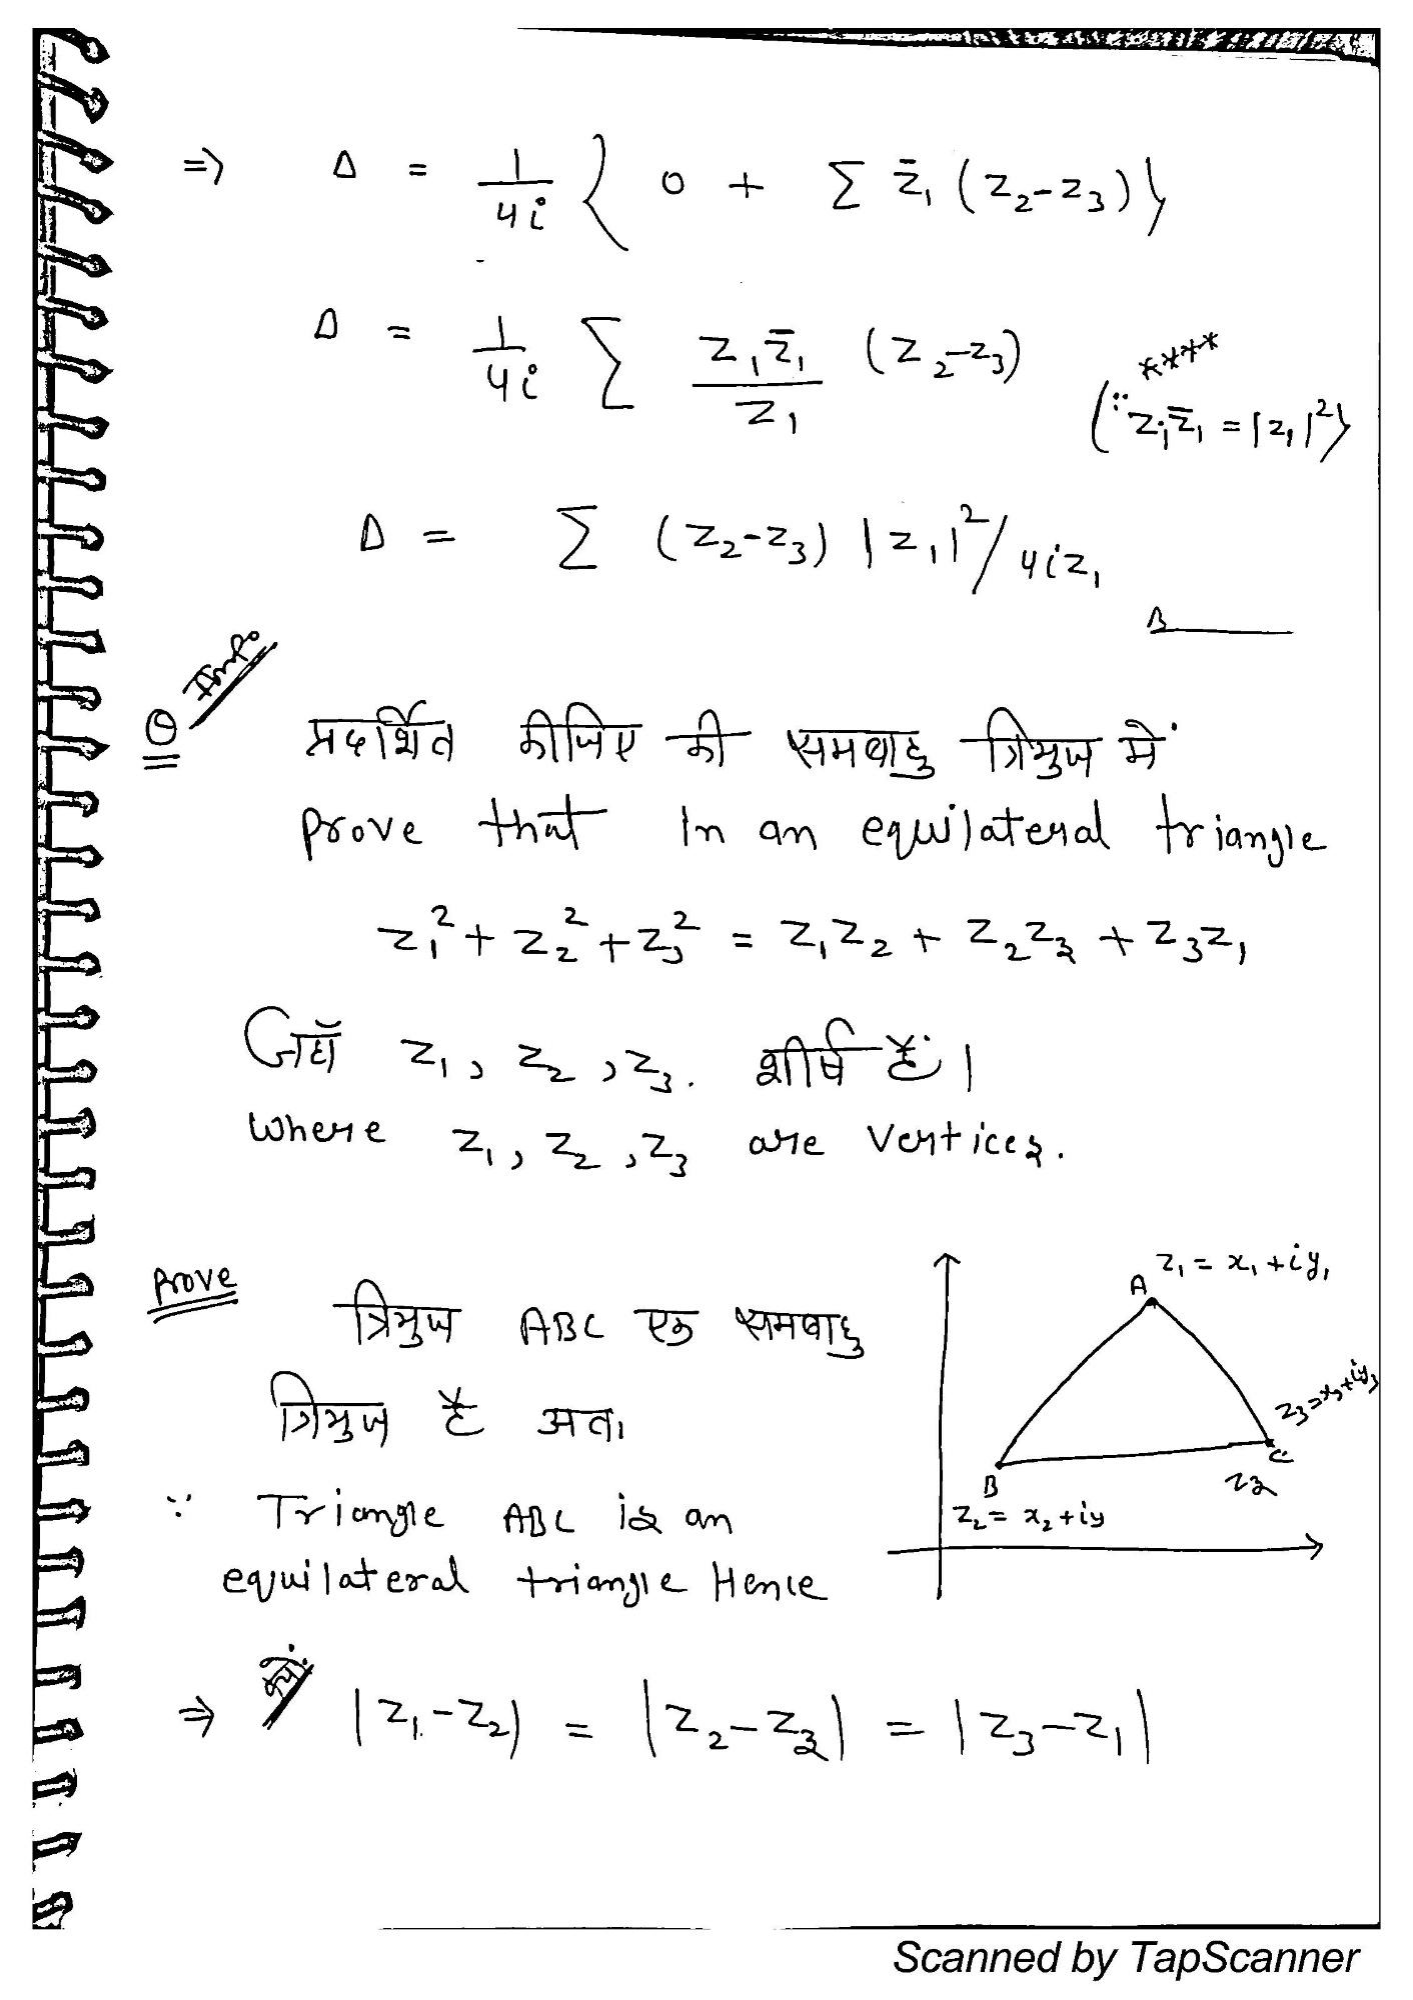 => Δ = 1/4i { 0 + Σ z̄₁ (z₂-z₃) }
Δ = 1/4i Σ z₁z̄₁/z₁ (z₂-z₃)
****
(∵ z₁z̄₁ = |z₁|²)
Δ = Σ (z₂-z₃) |z₁|²/4iz₁
Imp.
Q
प्रदर्शित कीजिए की समबाहु त्रिभुज में
Prove that In an equilateral triangle
z₁² + z₂² + z₃² = z₁z₂ + z₂z₃ + z₃z₁
जहाँ z₁, z₂, z₃. शीर्ष हैं।
Where z₁, z₂, z₃ are Vertices.
Prove
त्रिभुज ABC एक समबाहु
त्रिभुज है अतः
∵ Triangle ABC is an
equilateral triangle Hence
z₁ = x₁ + iy₁
A
z₃ = x₃ + iy₃
C
z₃
B
z₂ = x₂ + iy
=> क्यों |z₁-z₂| = |z₂-z₃| = |z₃-z₁|
Scanned by TapScanner